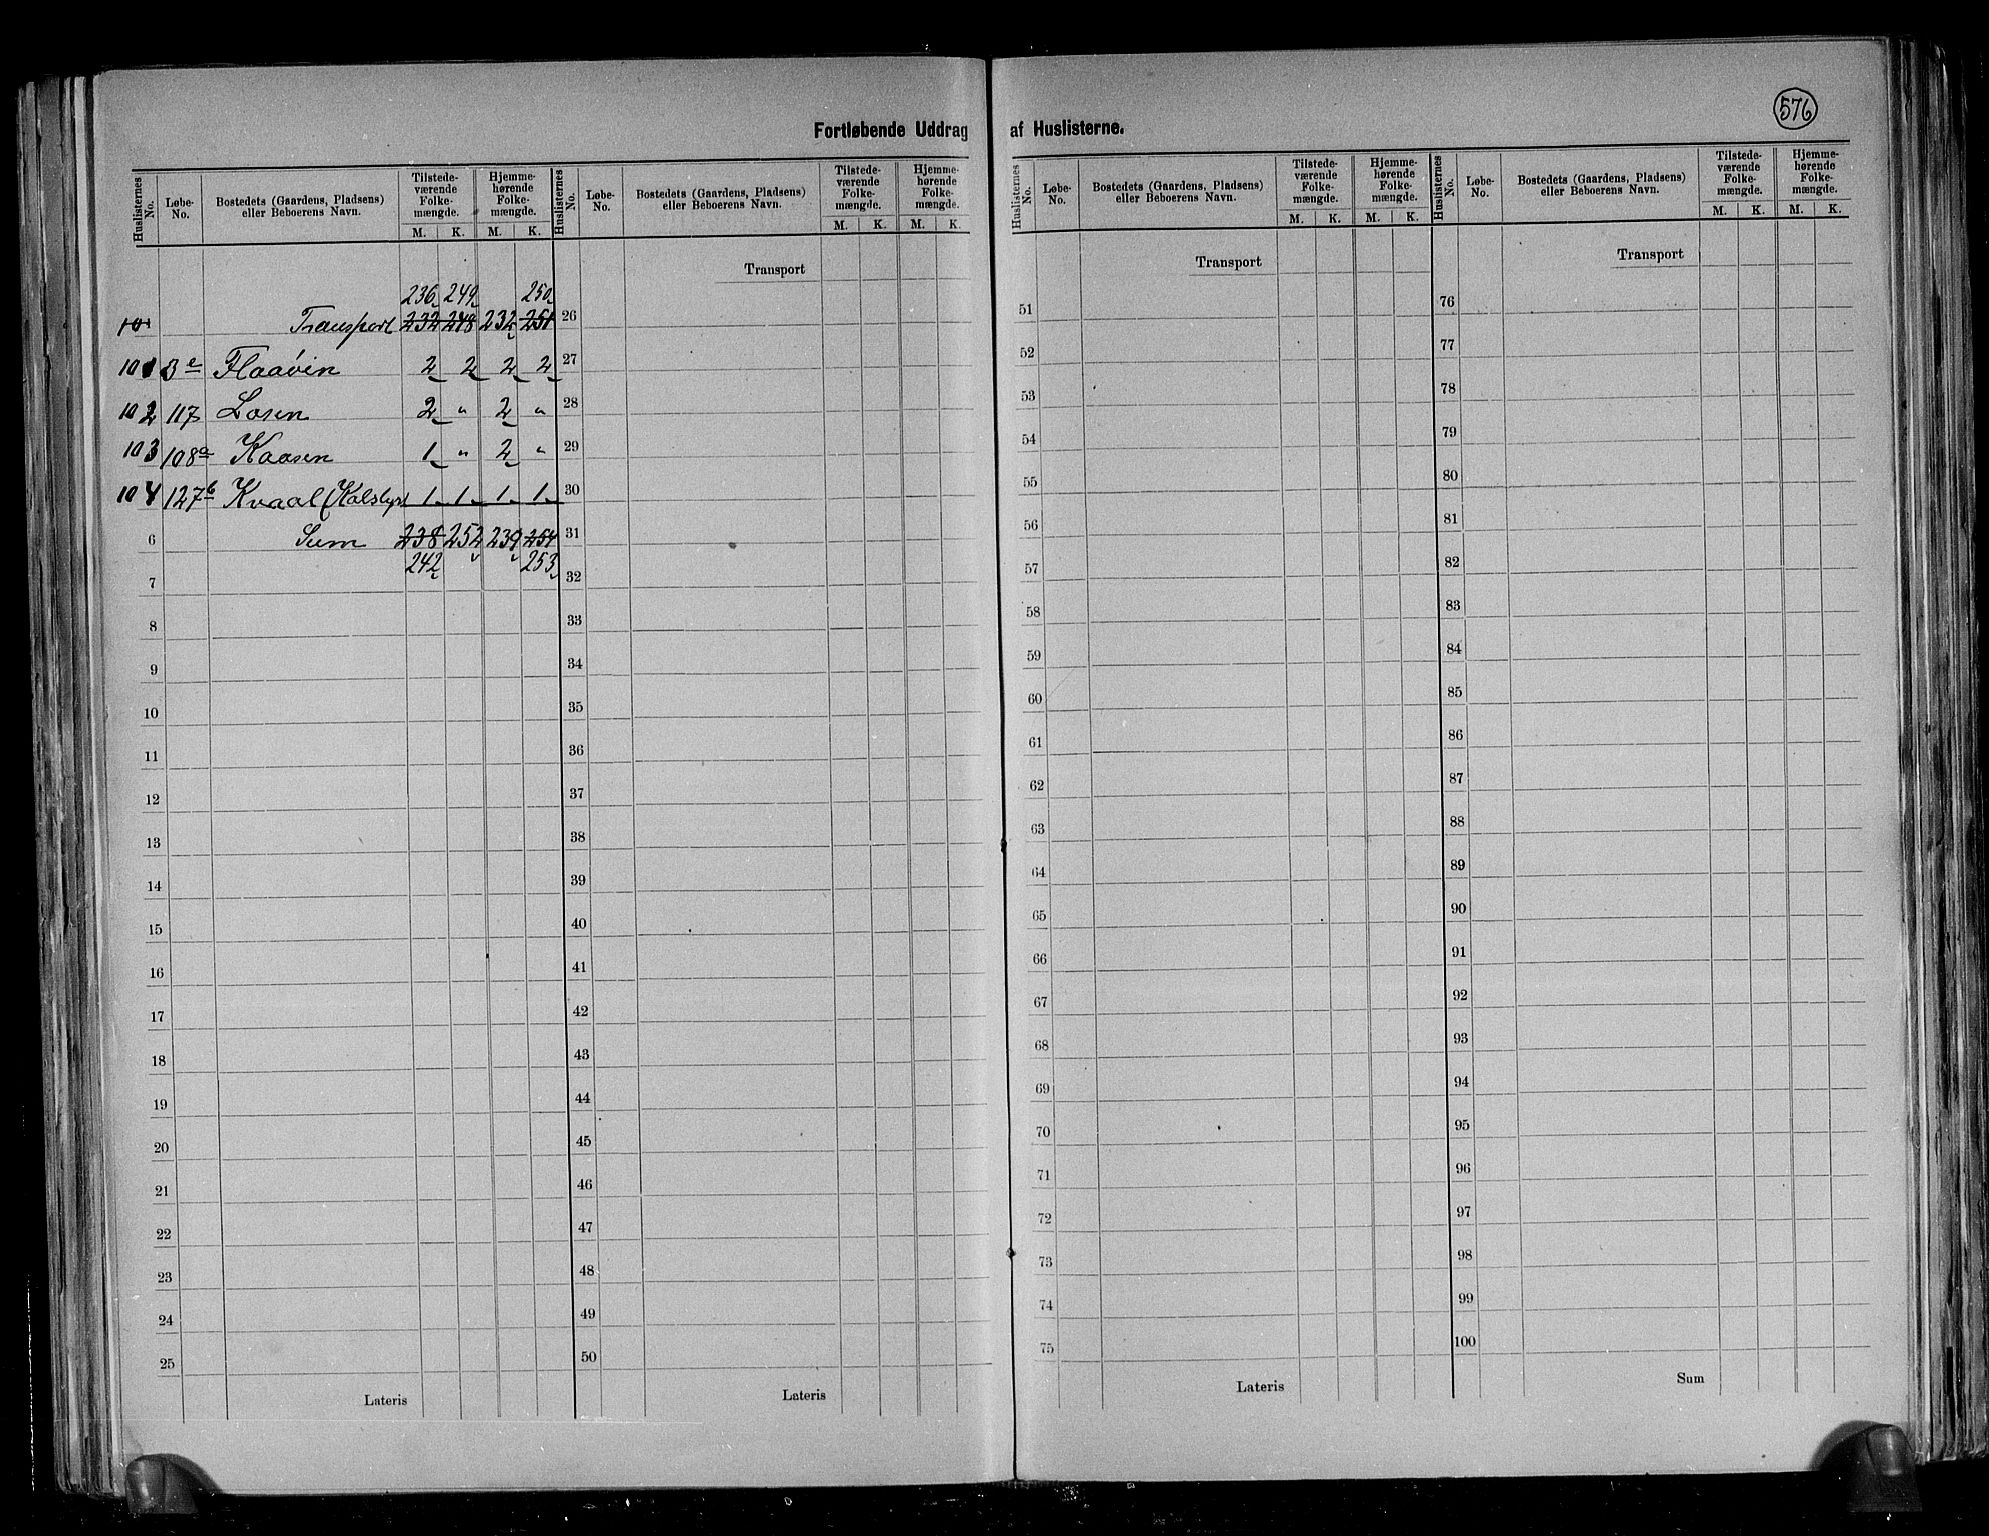 576
Fortløbende Uddrag af Huslisterne.
Huslisternes No. Løbe-No. Bostedets (Gaardens, Pladsens) eller Beboerens Navn. Tilstede-værende Folke-mængde. M. K. Hjemme-hørende Folke-mængde. M. K.
Huslisternes No. Løbe-No. Bostedets (Gaardens, Pladsens) eller Beboerens Navn. Tilstede-værende Folke-mængde. M. K. Hjemme-hørende Folke-mængde. M. K.
Huslisternes No. Løbe-No. Bostedets (Gaardens, Pladsens) eller Beboerens Navn. Tilstede-værende Folke-mængde. M. K. Hjemme-hørende Folke-mængde. M. K.
Huslisternes No. Løbe-No. Bostedets (Gaardens, Pladsens) eller Beboerens Navn. Tilstede-værende Folke-mængde. M. K. Hjemme-hørende Folke-mængde. M. K.
236 249 250
101 Transport 232 248 232 251
101 3e Flaavin 2 2 2 2
102 117 Losen 2 " 2 "
103 108a Kaasen 1 " 2 "
104 127b Kvaal (Kalsbys) 1 1 1 1
6 Sum 238 252 239 254
242 253
7
8
9
10
11
12
13
14
15
16
17
18
19
20
21
22
23
24
25
Lateris
Transport
26
27
28
29
30
31
32
33
34
35
36
37
38
39
40
41
42
43
44
45
46
47
48
49
50
Lateris
Transport
51
52
53
54
55
56
57
58
59
60
61
62
63
64
65
66
67
68
69
70
71
72
73
74
75
Lateris
Transport
76
77
78
79
80
81
82
83
84
85
86
87
88
89
90
91
92
93
94
95
96
97
98
99
100
Sum